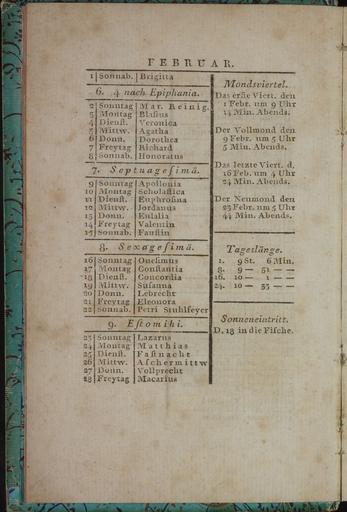 FEBRUAR.
1 Sonnab. Brigitta
6. 4 nach Epiphania.
2 Sonntag Mar. Reinig.
3 Montag Blasius
4 Dienst. Veronica
5 Mittw. Agatha
6 Donn. Dorothea
7 Freytag Richard
8 Sonnab. Honoratus
7. Septuagesimä.
9 Sonntag Apollonia
10 Montag Scholastica
11 Dienst. Euphrosina
12 Mittw. Jordanus
13 Donn. Eulalia
14 Freytag Valentin
15 Sonnab. Faustin
8. Sexagesimä.
16 Sonntag Onesimus
17 Montag Constantia
18 Dienst. Concordia
19 Mittw. Susanna
20 Donn. Lebrecht
21 Freytag Eleonora
22 Sonnab. Petri Stuhlfeyer
9. Estomihi.
23 Sonntag Lazarus
24 Montag Matthias
25 Dienst. Fastnacht
26 Mittw. Aschermittw
27 Donn. Vollprecht
28 Freytag Macarius
Mondsviertel.
Das erste Viert. den
1 Febr. um 9 Uhr
14 Min. Abends.
Der Vollmond den
9 Febr. um 5 Uhr
5 Min. Abends.
Das letzte Viert. d.
16 Febr. um 4 Uhr
24 Min. Abends.
Der Neumond den
23 Febr. um 5 Uhr
44 Min. Abends.
Tageslänge.
1. 9 St. 6 Min.
8. 9 — 31 — —
16. 10 — 1 — —
24. 10 — 33 — —
Sonneneintritt.
D. 18 in die Fische.